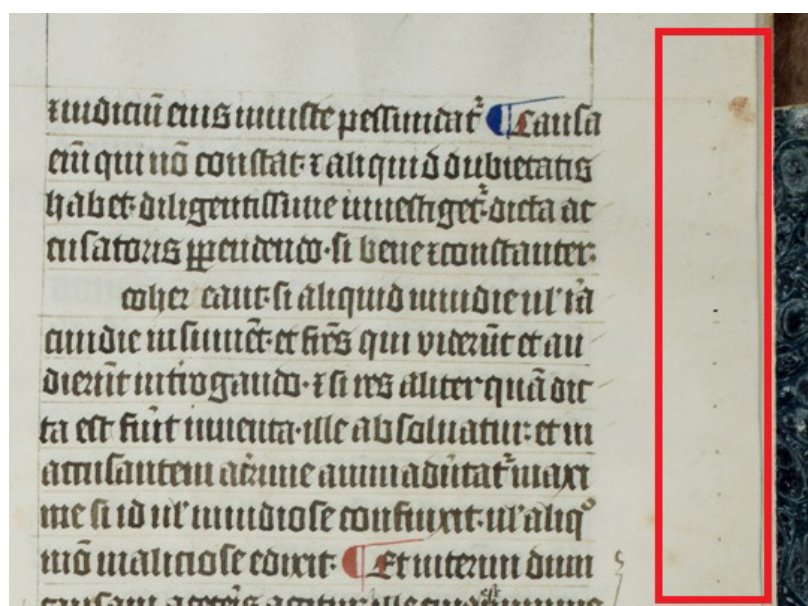 ⁊ iudiciū eius iniuste pessundat᷑ ¶ Causa
eni̅ qui nō constat· ⁊ aliquid dubietatis
habet· diligentissime inuestiget᷑· dicta ac
cusatoris ꝑpendendo· si bene ⁊ constanter·
coher eant· si aliquid inuidie ul' ira
cundie insinuēt· et frēs qui viderūt et au
dierūt introgando· ⁊ si res aliter quā dic
ta est fūit inuenta· ille absoluatur· et in
accusantem acrime animaduertat᷑ maxi
me si id ul' inuidiose confinxit· ul' aliqͦ
mō maliciose edixit· ¶ Et iterum dum
causam